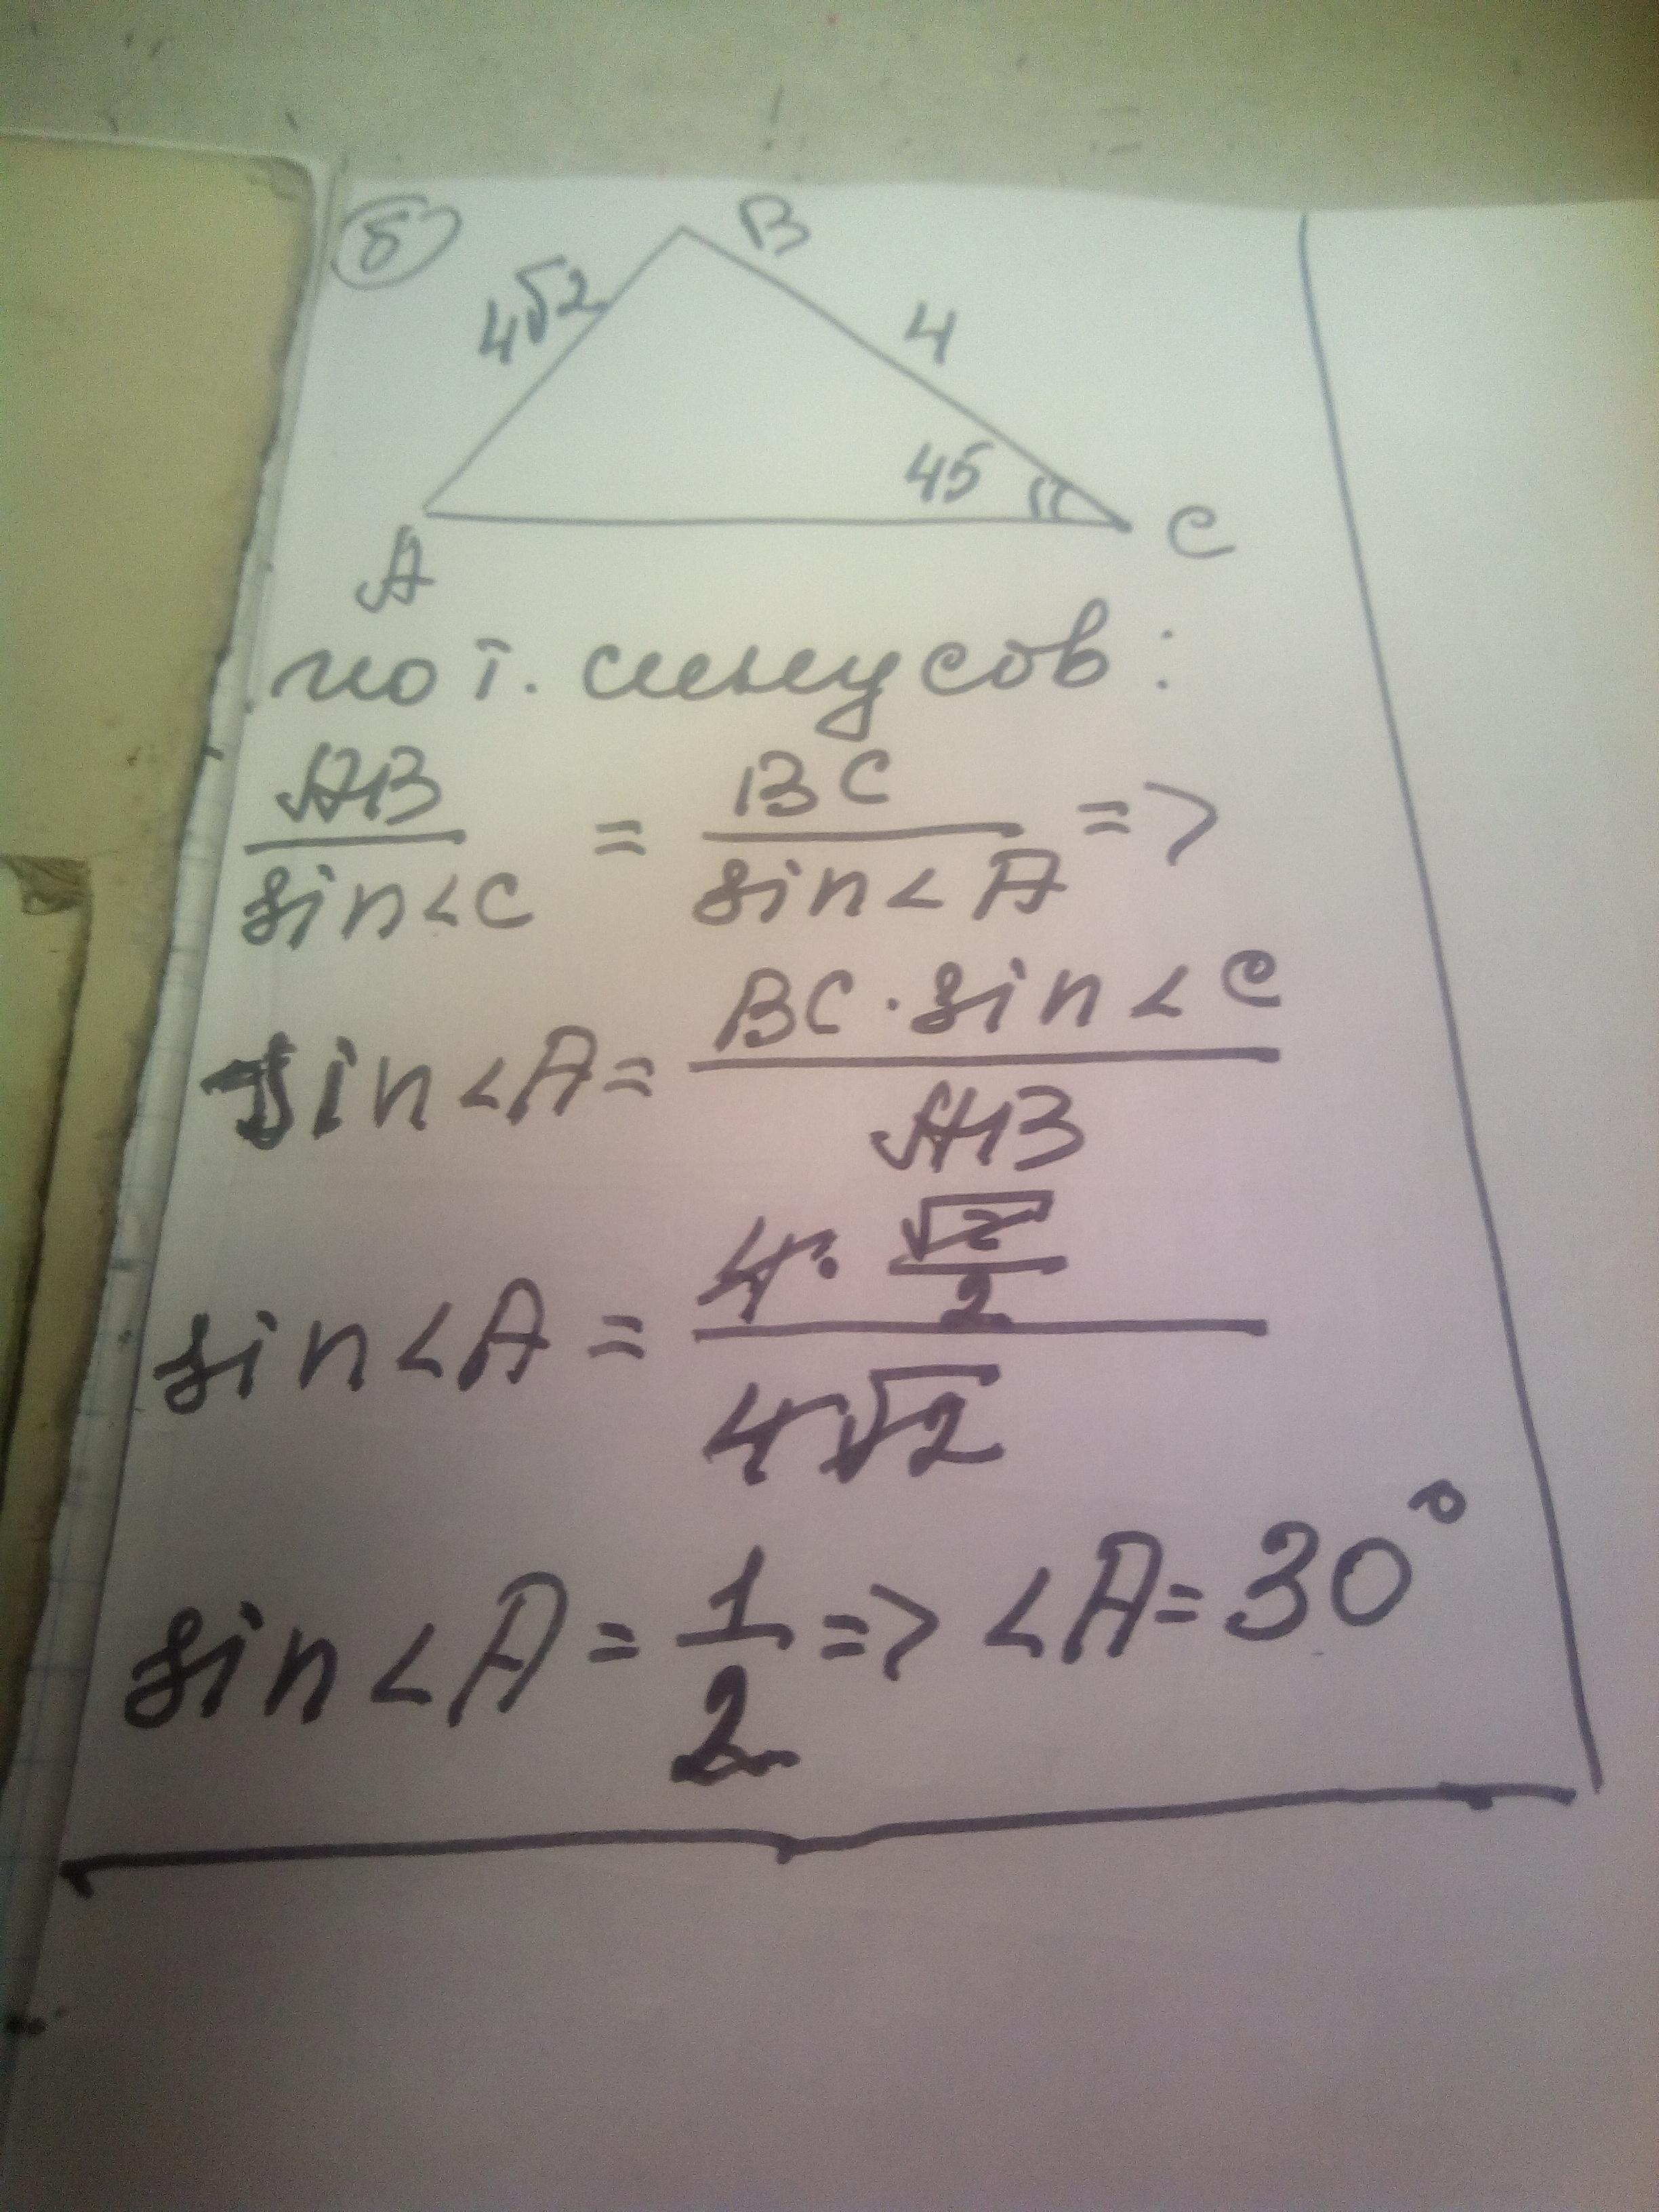 б
B
4√2
4
45
A
C
по т. синусов:
AB/sin<C = BC/sin<A =>
sin<A = BC·sin<C/AB
sin<A = 4·√2/2/4√2
sin<A = 1/2 => <A = 30°